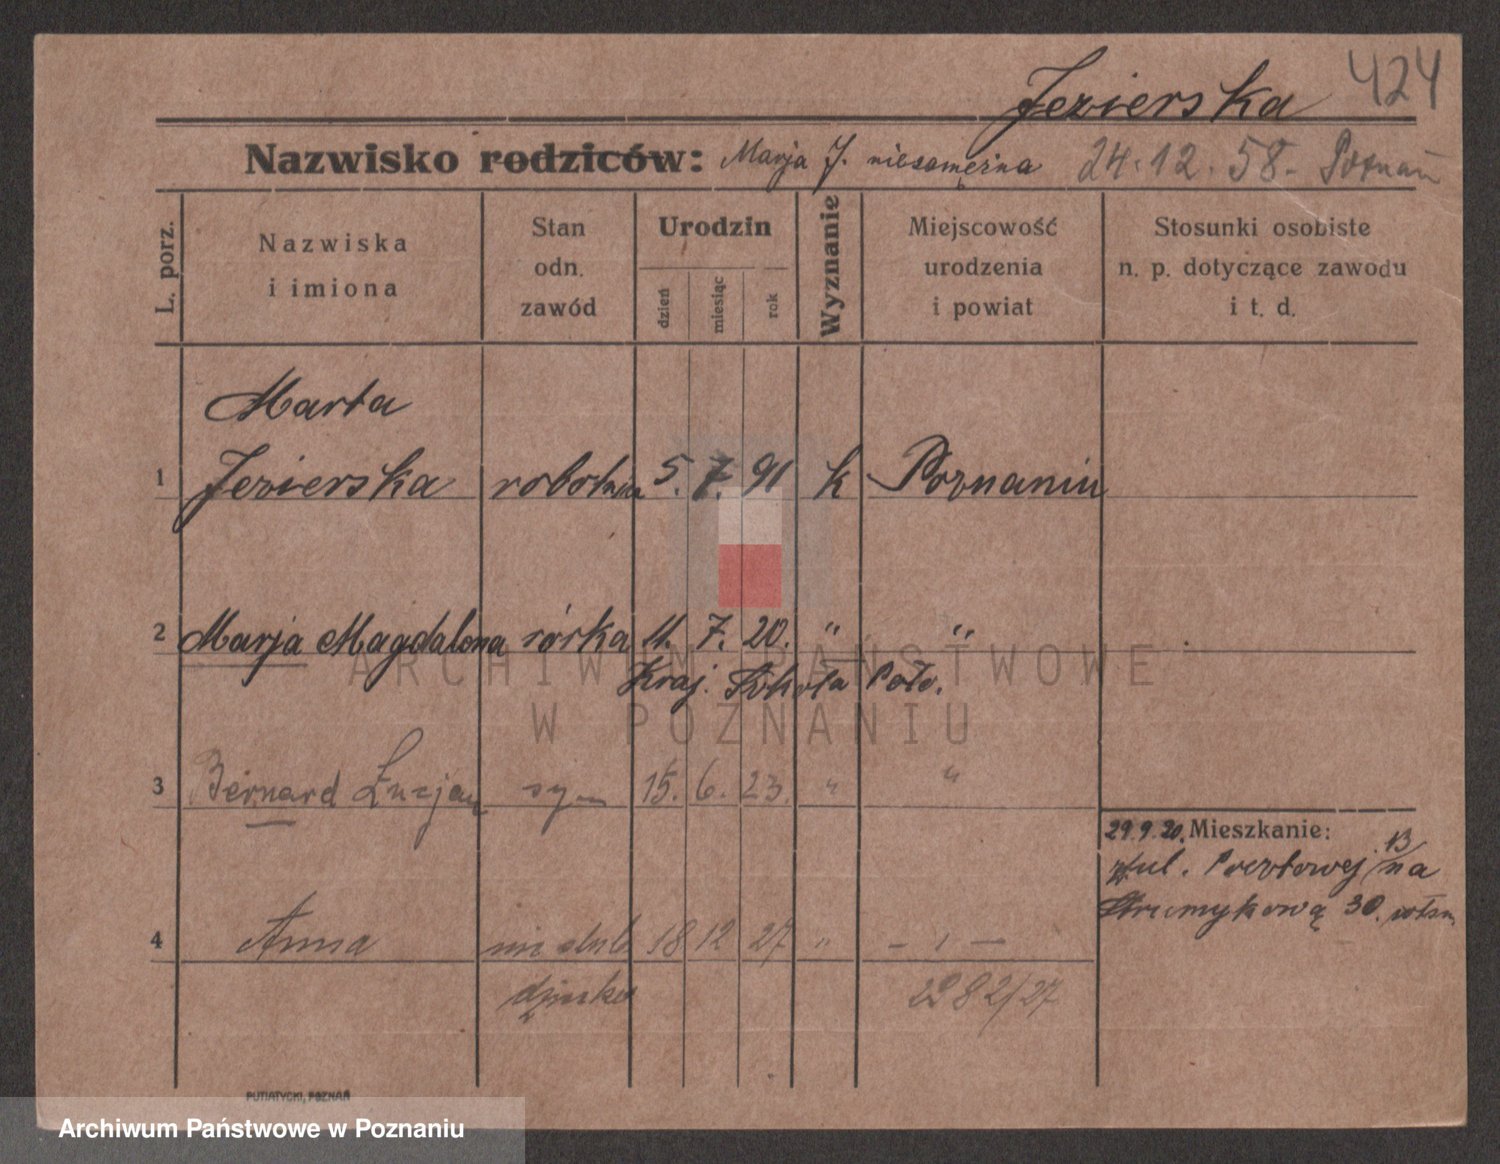 424
Jezierska
Nazwisko rodziców: Marja J. niezamężna 24.12.58- Poznań
L. porz.
Nazwiska
i imiona
Stan
odn.
zawód
Urodzin
dzień
miesiąc
rok
Wyznanie
Miejscowość
urodzenia
i powiat
Stosunki osobiste
n. p. dotyczące zawodu
i t. d.
Marta
1 Jezierska robotnica 5. 7. 91 k Poznaniu
2 Marja Magdalena córka 11. 7. 20. " "
Kraj. Szkoła Poło.
3 Bernard Łucjan syn 15. 6. 23. " "
29.9.20. Mieszkanie:
z ul. Pocztowej 13/ na
Strumykową 30.
4 Anna nieślub 18 12 27 " - " -
dziecko 2982/27
PUTIATYCKI, POZNAŃ
ARCHIWUM PAŃSTWOWE
W POZNANIU
Archiwum Państwowe w Poznaniu